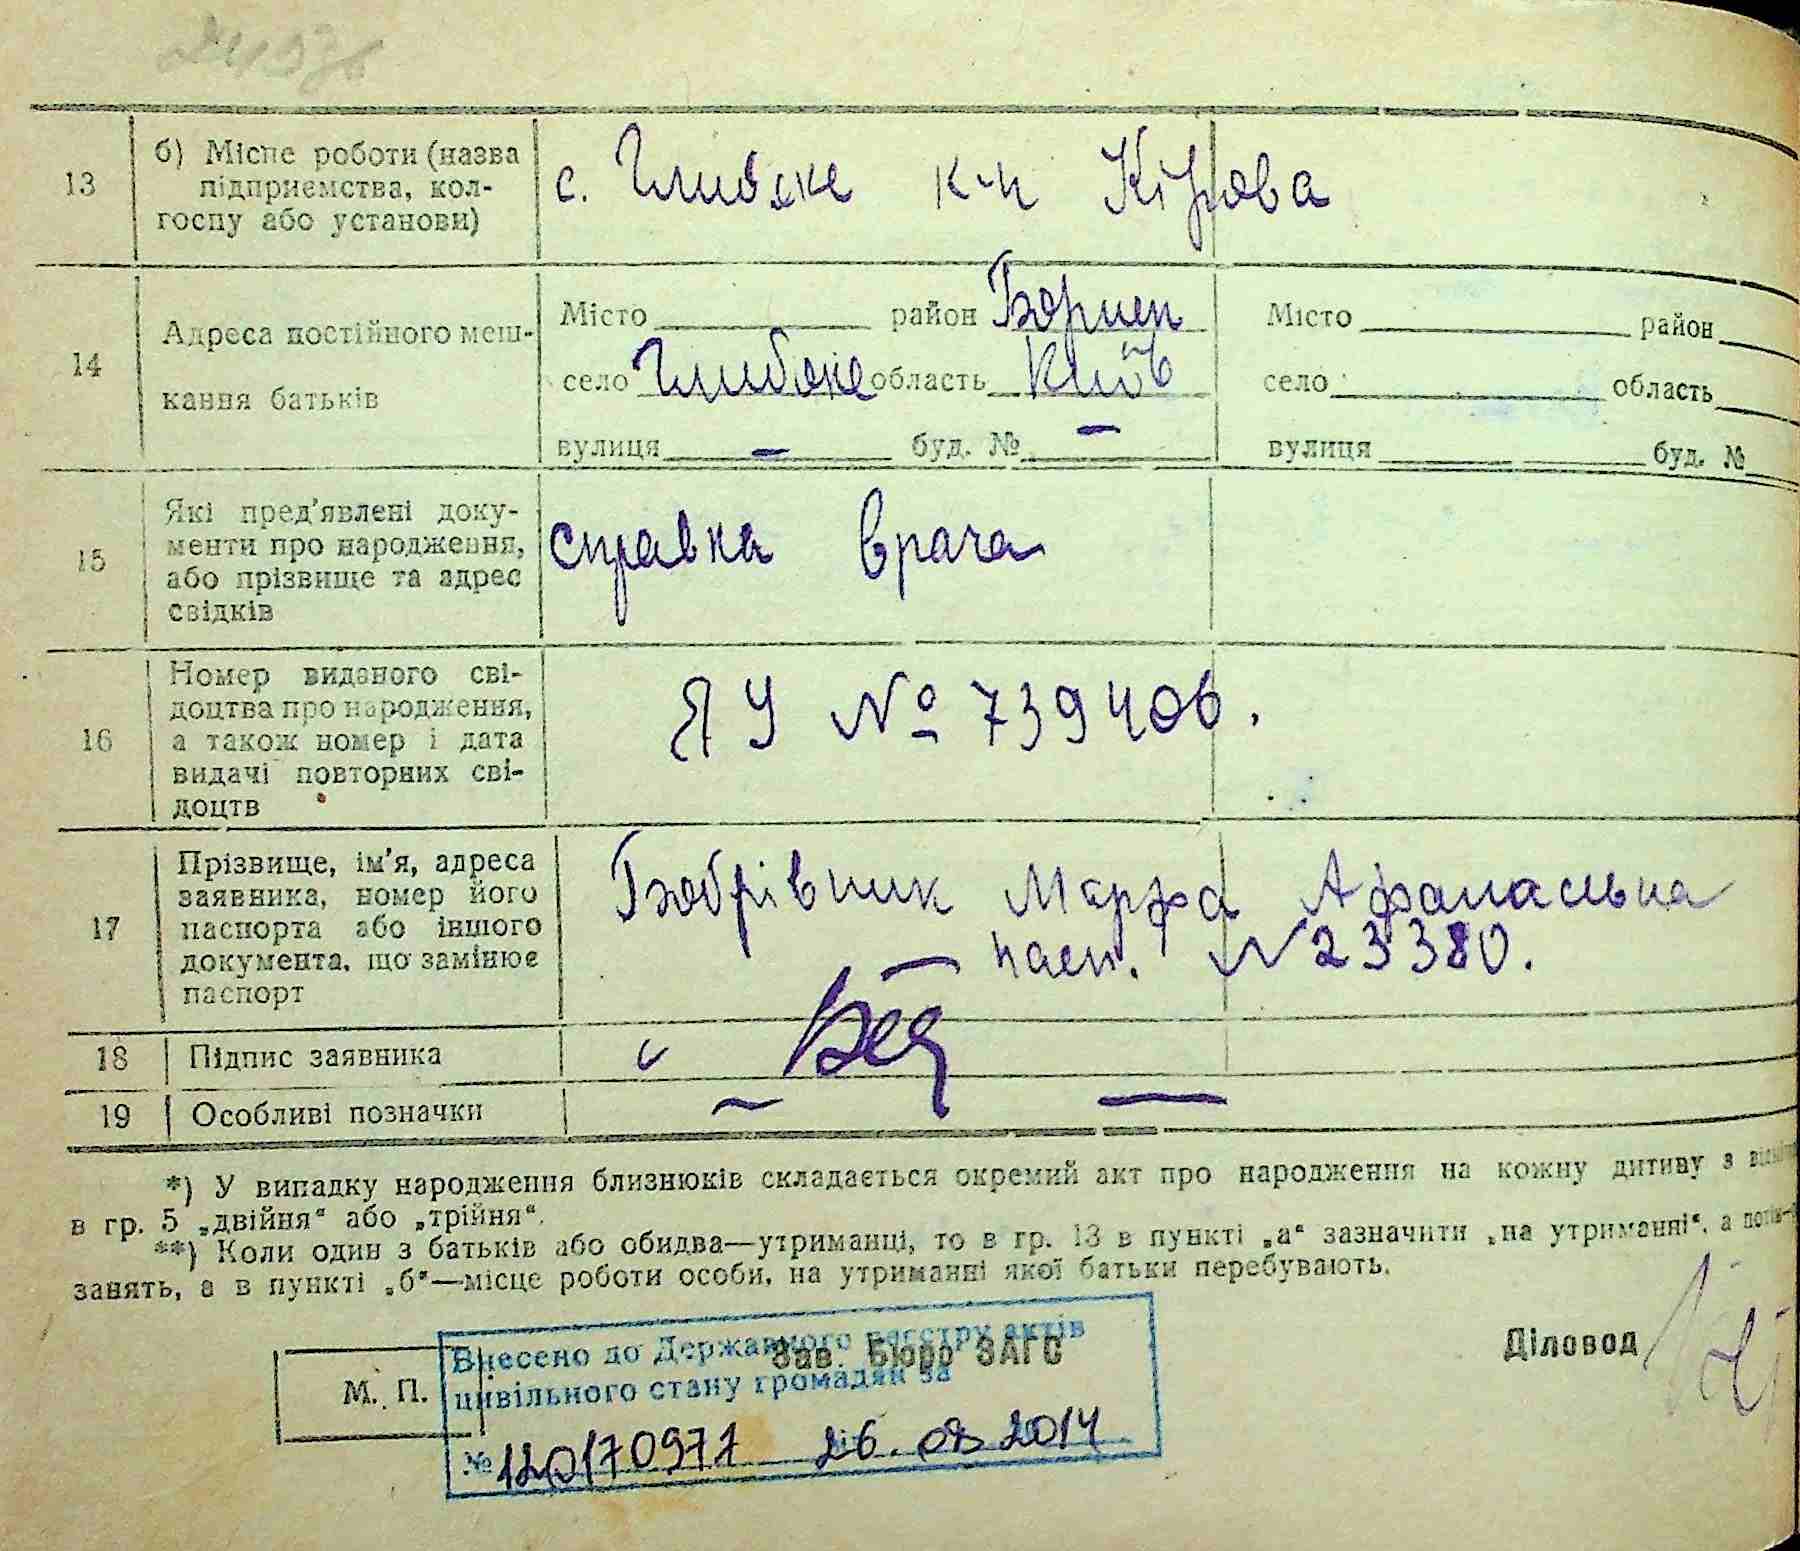 13 б) Місце роботи (назва підприємства, колгоспу або установи) с. Глибоке к-п Кірова
14 Адреса постійного мешкання батьків
Місто район Борисп Місто район
село Глибоке область Київ село область
вулиця — буд. № — вулиця буд. №
15 Які пред'явлені документи про народження, або прізвище та адрес свідків справка врача
16 Номер виданого свідоцтва про народження, а також номер і дата видачі повторних свідоцтв ЯУ № 739406.
17 Прізвище, ім'я, адреса заявника, номер його паспорта або іншого документа, що замінює паспорт Бобрівник Марфа Афанасьвна
— пасп. №23380.
18 Підпис заявника
19 Особливі позначки — —
*) У випадку народження близнюків складається окремий акт про народження на кожну дитину з
в гр. 5 „двійня“ або „трійня“.
**) Коли один з батьків або обидва—утриманці, то в гр. 13 в пункті „а“ зазначити „на утриманні“, а
занять, а в пункті „б“—місце роботи особи, на утриманні якої батьки перебувають.
М. П. Зав. Бюро ЗАГС Діловод
Внесено до Державного реєстру актів
цивільного стану громадян за
№ 120170971 26.08.2014